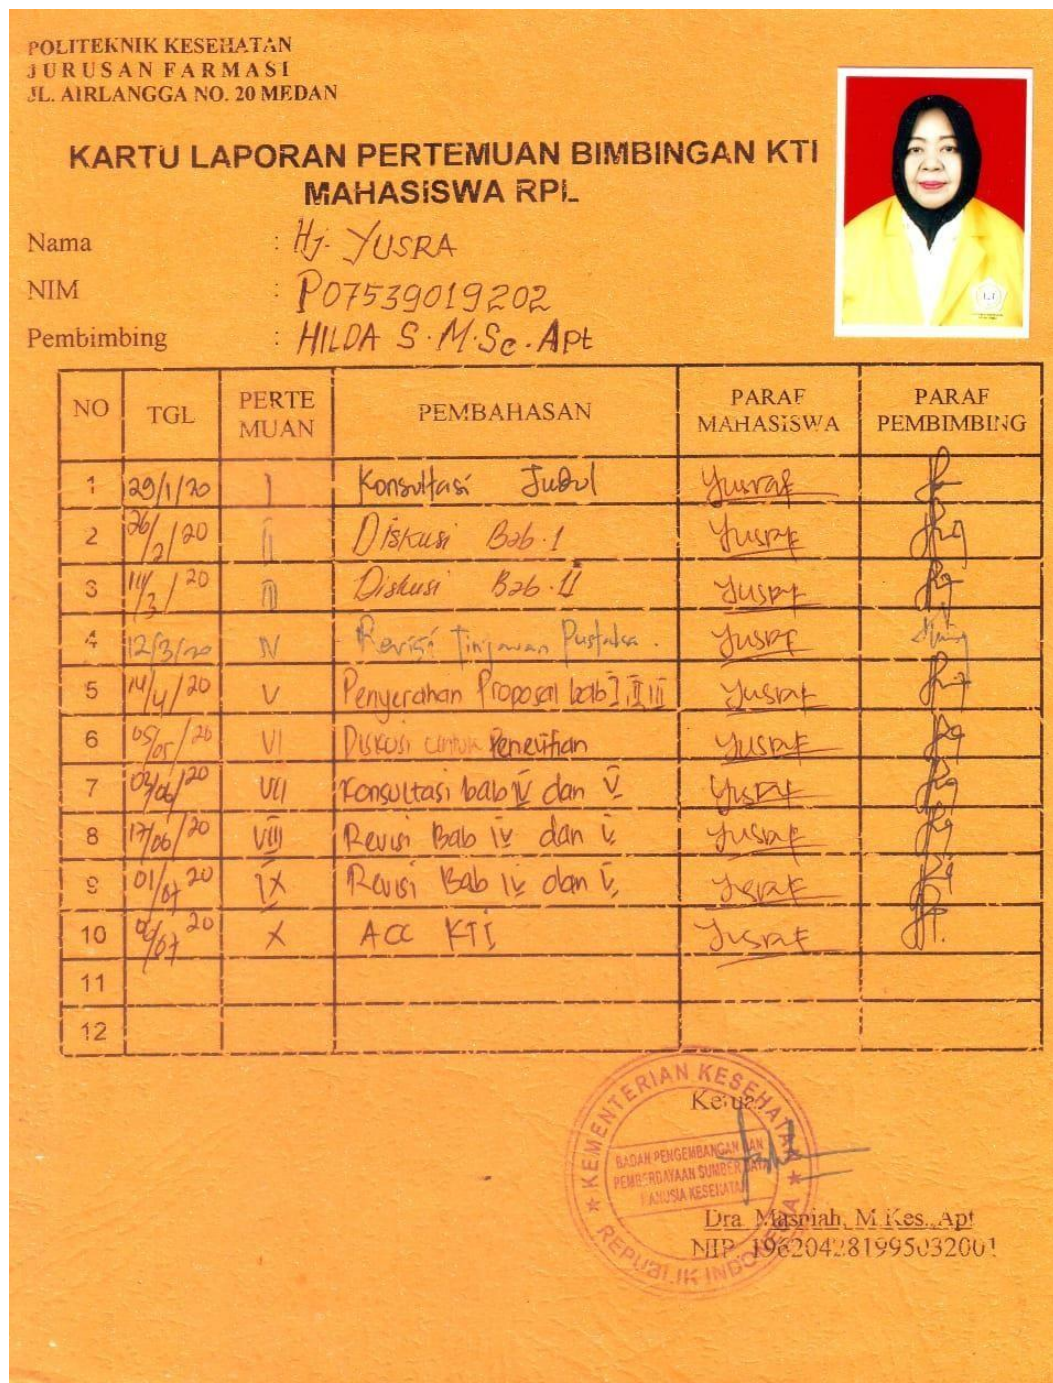 POLITEKNIK KESEHATAN
JURUSAN FARMASI
JL. AIRLANGGA NO. 20 MEDAN
KARTU LAPORAN PERTEMUAN BIMBINGAN KTI
MAHASISWA RPL
Nama : Hj. YUSRA
NIM : P07539019202
Pembimbing : HILDA S. M.Sc. Apt
NO TGL PERTE MUAN PEMBAHASAN PARAF MAHASISWA PARAF PEMBIMBING
1 29/1/20 I Konsultasi Judul
2 26/2/20 II Diskusi Bab.I
3 11/3/20 III Diskusi Bab.II
4 12/3/20 IV Revisi Tinjauan Pustaka.
5 14/4/20 V Penyerahan Proposal bab I, II, III
6 05/05/20 VI Diskusi untuk Penelitian
7 02/06/20 VII Konsultasi bab IV dan V
8 17/06/20 VIII Revisi Bab IV dan V
9 01/07 20 IX Revisi Bab IV dan V
10 07 20 X ACC KTI
11
12
Ketua
KEMENTERIAN KESEHATAN
BADAN PENGEMBANGAN DAN
PEMBERDAYAAN SUMBER DAYA
MANUSIA KESEHATAN
REPUBLIK INDONESIA
Dra. Masniah, M.Kes., Apt
NIP. 196204281995032001